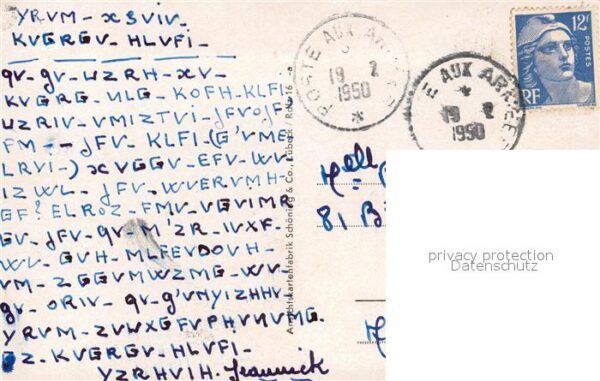 YRVM - XSVIV -
KVGRGV - HLVFI -
qv - gv - UZRH - XV -
KVGRG - NLG - KOFH - KLFI
UZRIV - VMIZTVI - jFVOjF
FM - - jFV - KLFI - (G'VME
LRVI - ) XVGGV - EFV - WV
IZWL - jFV - WVERVMH -
GF? ELROZ - FMV - VGVIMR
GV - jFV - qv - M'ZR - IVXF -
WV - GVH - MLFEVOOVH -
VM - ZGGVMWZMG - WV -
gv - ORIV - qv - g'VNYIZHHV
YRVM -
GZ - KVGRGV - HLVFI -
YZRHVIH - Jeannick
Ansichtskartenfabrik Schöning & Co., Lübeck
POSTE AUX ARMEES
19 2
1950
E AUX ARMEE
19 2
1950
12F
POSTES
RF
Melle
81 B
privacy protection
Datenschutz